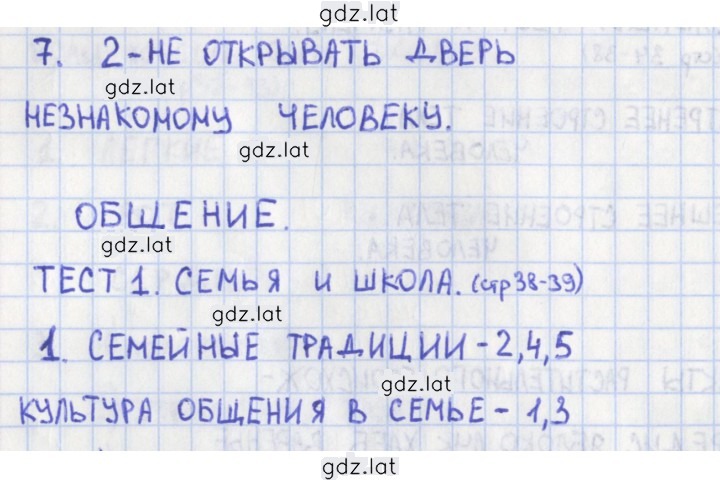 gdz.lat
7. 2-НЕ ОТКРЫВАТЬ ДВЕРЬ
gdz.lat
НЕЗНАКОМОМУ ЧЕЛОВЕКУ.
gdz.lat
ОБЩЕНИЕ.
gdz.lat
ТЕСТ 1. СЕМЬЯ И ШКОЛА. (стр 38-39)
gdz.lat
1. СЕМЕЙНЫЕ ТРАДИЦИИ - 2,4,5
gdz.lat
КУЛЬТУРА ОБЩЕНИЯ В СЕМЬЕ - 1,3
gdz.lat